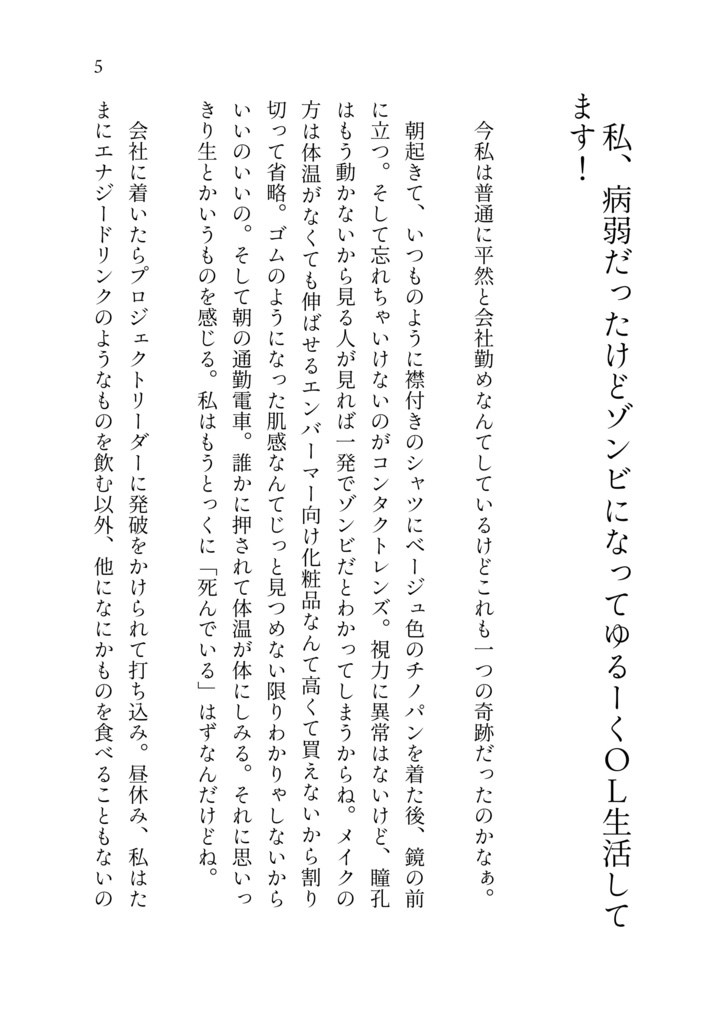 私、病弱だったけどゾンビになってゆるーくOL生活して
ます！
今私は普通に平然と会社勤めなんてしているけどこれも一つの奇跡だったのかなぁ。
朝起きて、いつものように襟付きのシャツにベージュ色のチノパンを着た後、鏡の前
に立つ。そして忘れちゃいけないのがコンタクトレンズ。視力に異常はないけど、瞳孔
はもう動かないから見る人が見れば一発でゾンビだとわかってしまうからね。メイクの
方は体温がなくても伸ばせるエンバーマー向け化粧品なんて高くて買えないから割り
切って省略。ゴムのようになった肌感なんてじっと見つめない限りわかりゃしないから
いいのいいの。そして朝の通勤電車。誰かに押されて体温が体にしみる。それに思いっ
きり生とかいうものを感じる。私はもうとっくに「死んでいる」はずなんだけどね。
会社に着いたらプロジェクトリーダーに発破をかけられて打ち込み。昼休み、私はた
まにエナジードリンクのようなものを飲む以外、他になにかものを食べることもないの
5